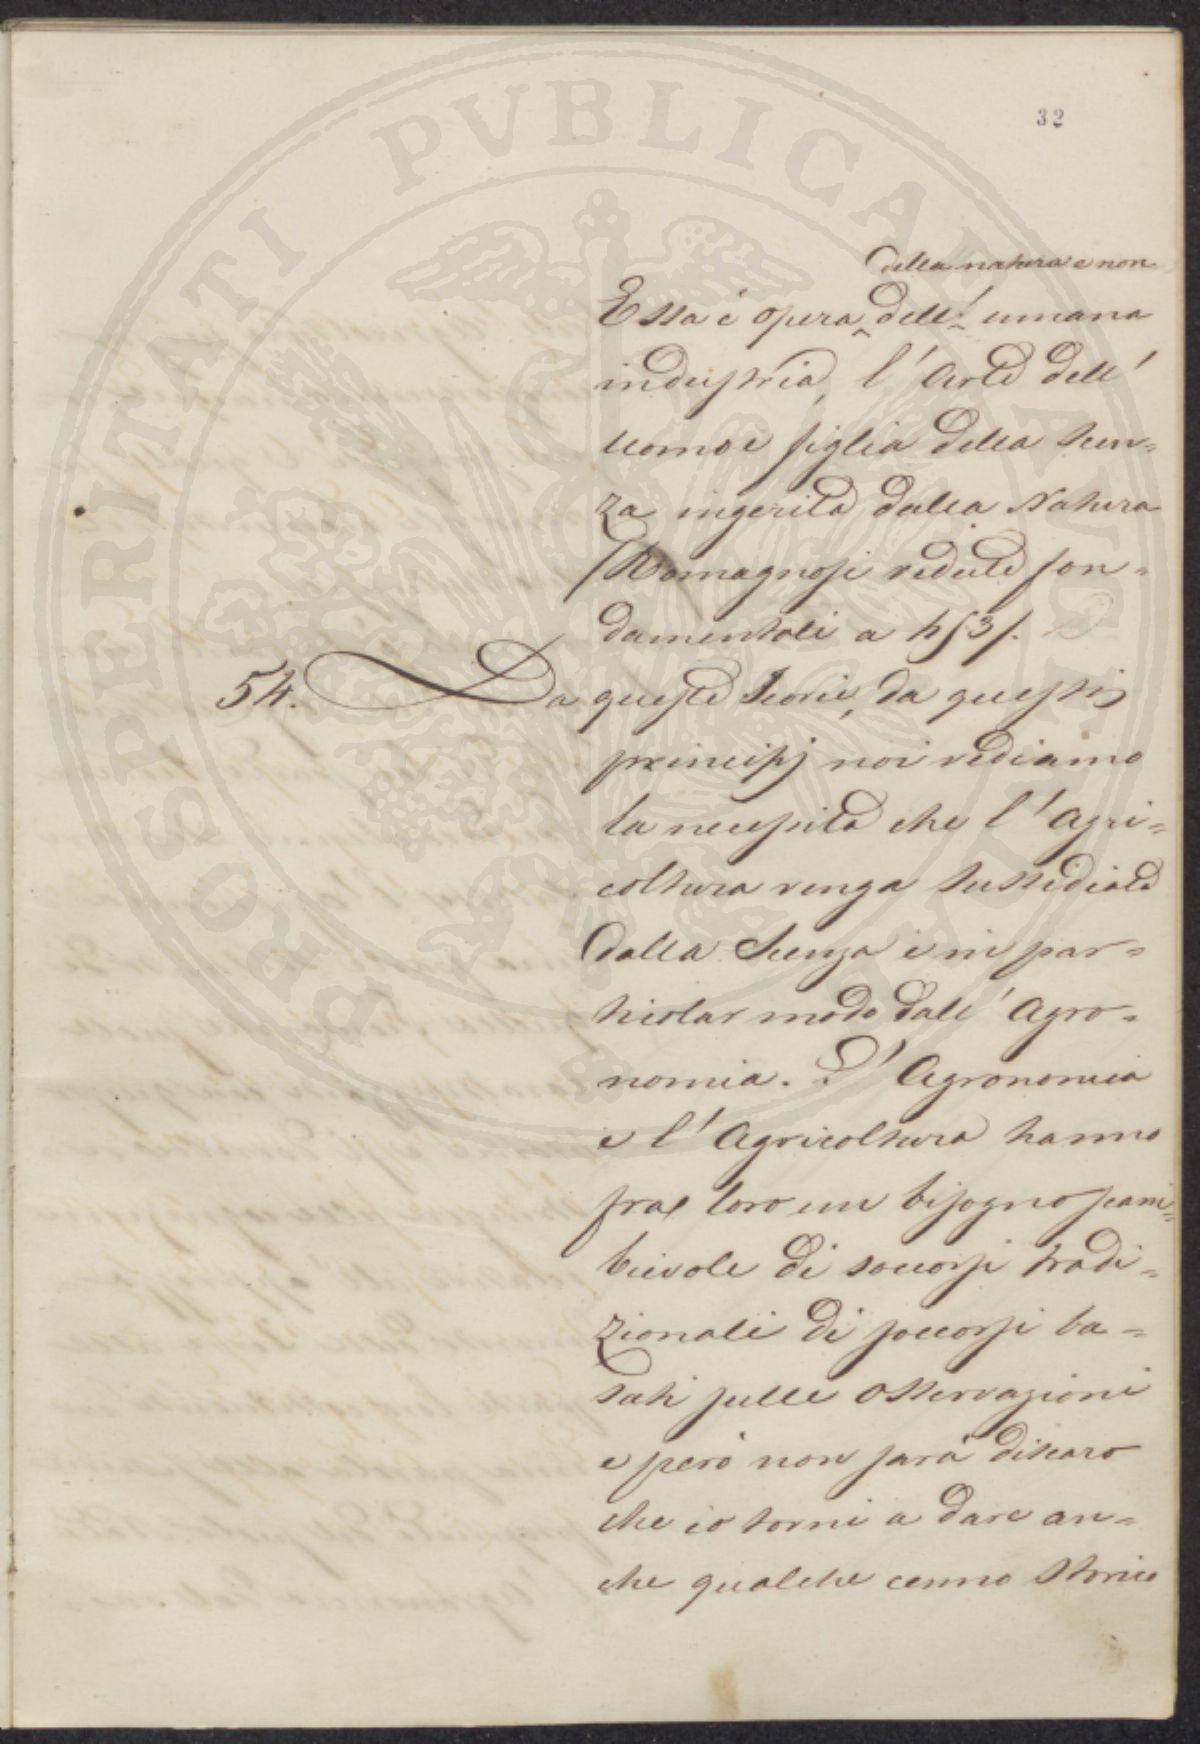 32
della natura e non
Essa è opera dell' umana
industria, l' Arte dell'
uomo è figlia della Scen=
za ingerita dalla Natura
(Romagnosi vedute fon=
damentali a
54. Da queste Teorie, da questi
principj noi vediamo
la necessità che l' Agri=
coltura venga sussidiata
dalla Scenza e in par=
ticolar modo dall' Agro=
nomia. L' Agronomia
e l' Agricoltura hanno
fra loro un bisogno scam=
bievole di soccorsi tradi=
zionali di soccorsi ba=
sati sulle osservazioni
e però non sarà discaro
che io torni a dare an=
che qualche cenno Storico
PROSPERITATI PVBLICAE AVGENDAE